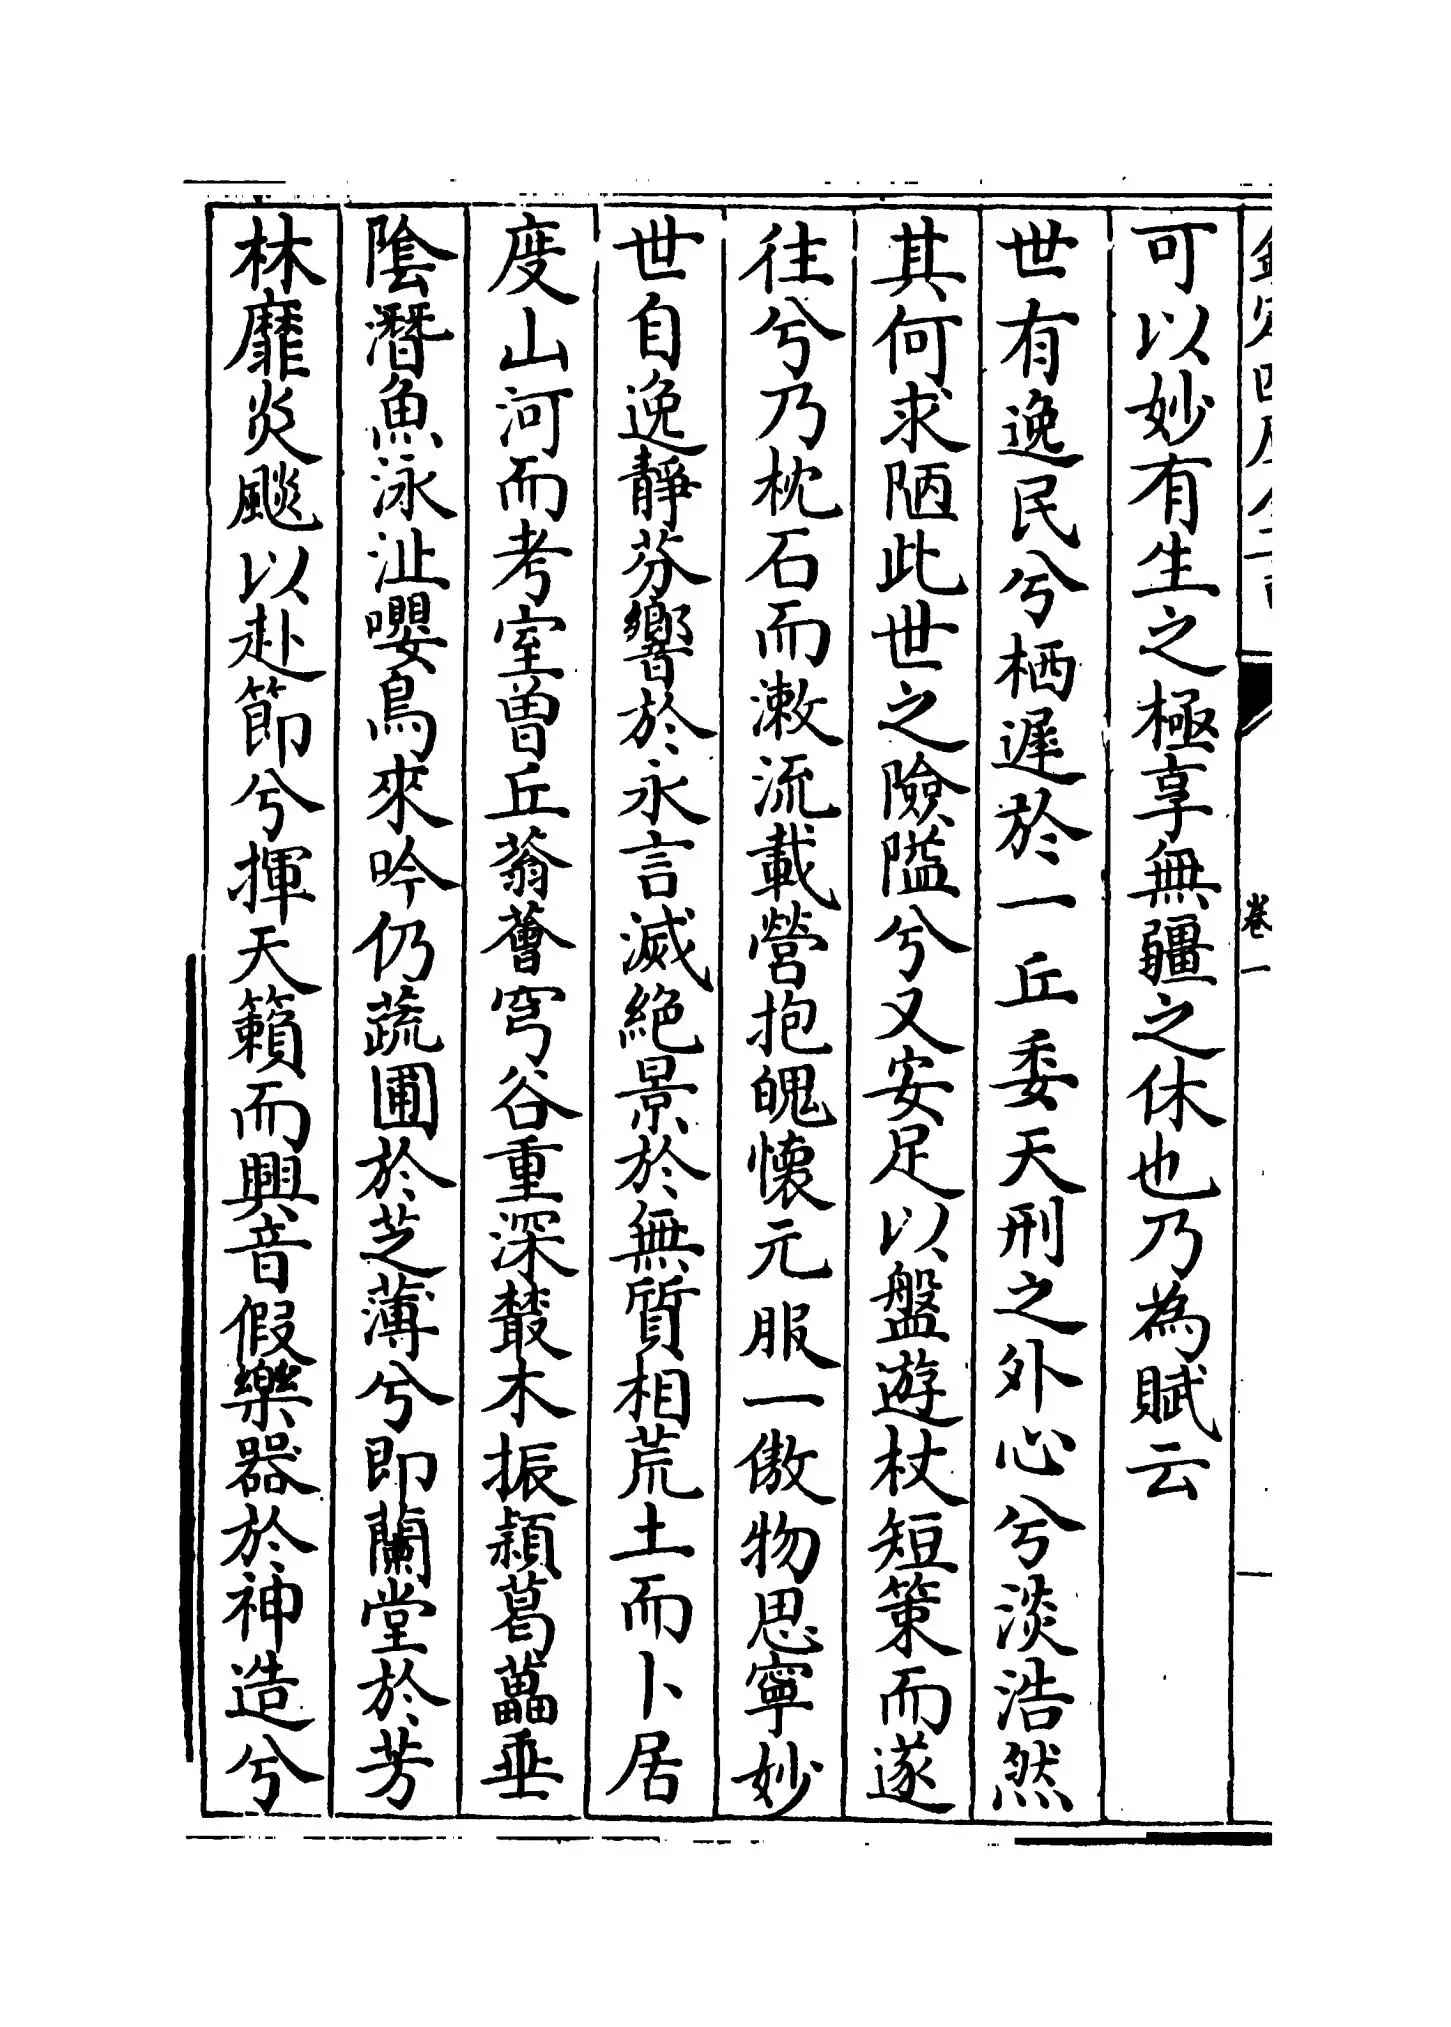 卷一
可以妙有生之極享無疆之休也乃為賦云
世有逸民兮栖遲於一丘委天刑之外心兮淡浩然
其何求陋此世之險隘兮又安足以盤遊杖短策而遂
往兮乃枕石而漱流載營抱魄懷元服一傲物思寧妙
世自逸靜芬響於永言滅絶景於無質相荒土而卜居
度山河而考室曽丘蓊薈穹谷重深叢木振穎葛藟垂
隂潛魚泳沚嚶鳥來吟仍蔬圃於芝薄兮即蘭堂於芳
林靡炎飈以赴節兮揮天籟而興音假樂器於神造兮